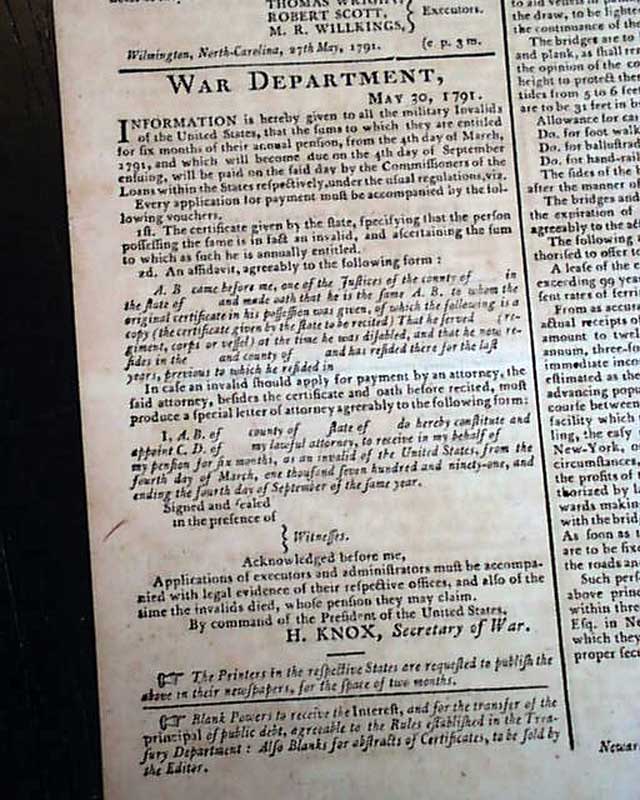 THOMAS WRIGHT,
ROBERT SCOTT,
M. R. WILLKINGS,
Executors.
Wilmington, North-Carolina, 27th May, 1791. (e. p. 3 m.
WAR DEPARTMENT,
MAY 30, 1791.
INFORMATION is hereby given to all the military Invalids
of the United States, that the sums to which they are entitled
for six months of their annual pension, from the 4th day of March,
1791, and which will become due on the 4th day of September
ensuing, will be paid on the said day by the Commissioners of the
Loans within the States respectively, under the usual regulations, viz.
Every application for payment must be accompanied by the fol-
lowing vouchers.
1st. The certificate given by the state, specifying that the person
possessing the same is in fact an invalid, and ascertaining the sum
to which as such he is annually entitled.
2d. An affidavit, agreeably to the following form :
A. B came before me, one of the Justices of the county of in
the state of and made oath that he is the same A. B. to whom the
original certificate in his possession was given, of which the following is a
copy (the certificate given by the state to be recited) That he served (re-
giment, corps or vessel) at the time he was disabled, and that he now re-
sides in the and county of and has resided there for the last
years, previous to which he resided in
In case an invalid should apply for payment by an attorney, the
said attorney, besides the certificate and oath before recited, must
produce a special letter of attorney agreeably to the following form:
I, A. B. of county of state of do hereby constitute and
appoint C. D. of my lawful attorney, to receive in my behalf of
my pension for six months, as an invalid of the United States, from the
fourth day of March, one thousand seven hundred and ninety-one, and
ending the fourth day of September of the same year.
Signed and sealed
in the presence of
Witnesses.
Acknowledged before me,
Applications of executors and administrators must be accompa-
nied with legal evidence of their respective offices, and also of the
time the invalids died, whose pension they may claim.
By command of the President of the United States,
H. KNOX, Secretary of War.
☞ The Printers in the respective States are requested to publish the
above in their newspapers, for the space of two months.
☞ Blank Powers to receive the Interest, and for the transfer of the
principal of public debt, agreeable to the Rules established in the Trea-
sury Department : Also Blanks for abstracts of Certificates, to be sold by
the Editor.
the draw, to be lighte
the continuance of the
The bridges are to
and plank, as shall re
the opinion of the co
height to protect the
tides from 5 to 6 feet
are to be 31 feet in b
Allowance for car
Do. for foot walk
Do. for ballustrad
Do. for hand-rai
The sides of the b
after the manner of
The bridges and
the expiration of
agreeably to the ac
The following
thorised to offer to
A lease of the
exceeding 99 year
sent rates of ferri
From as accura
actual receipts of
amount to twel
annum, three-fo
immediate inco
estimated as the
advancing popu
course between
facility which
ling, the easy
New-York, o
circumstances,
the profits of
thorized by l
wards making
with the brid
As soon as t
are to be fix
the roads an
Such per
above princ
within thre
Esq. in Ne
which they
proper secu
Newar